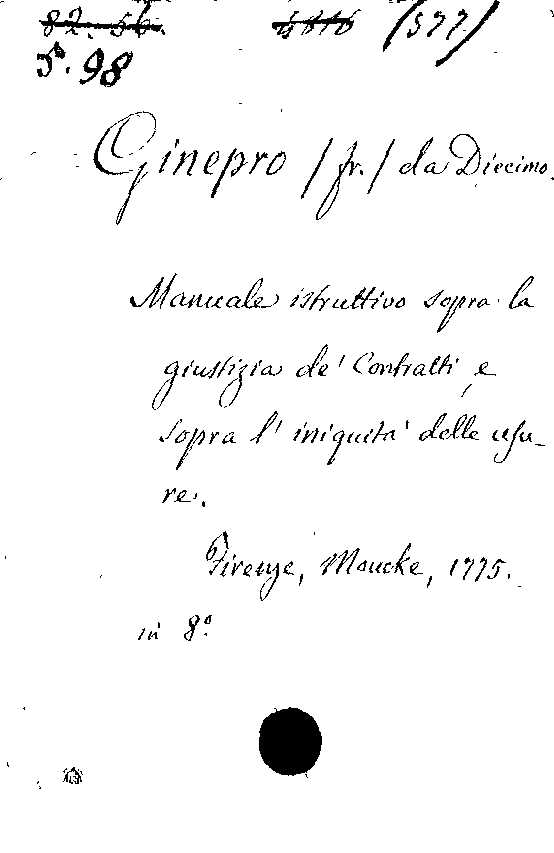 82. 56. 4816 (577)
5. 98
Ginepro /fr./ da Diecimo.
Manuale istruttivo sopra la
giustizia de' Contratti, e
sopra l' iniquita' delle usu-
re.
Firenze, Moucke, 1775.
in 8º